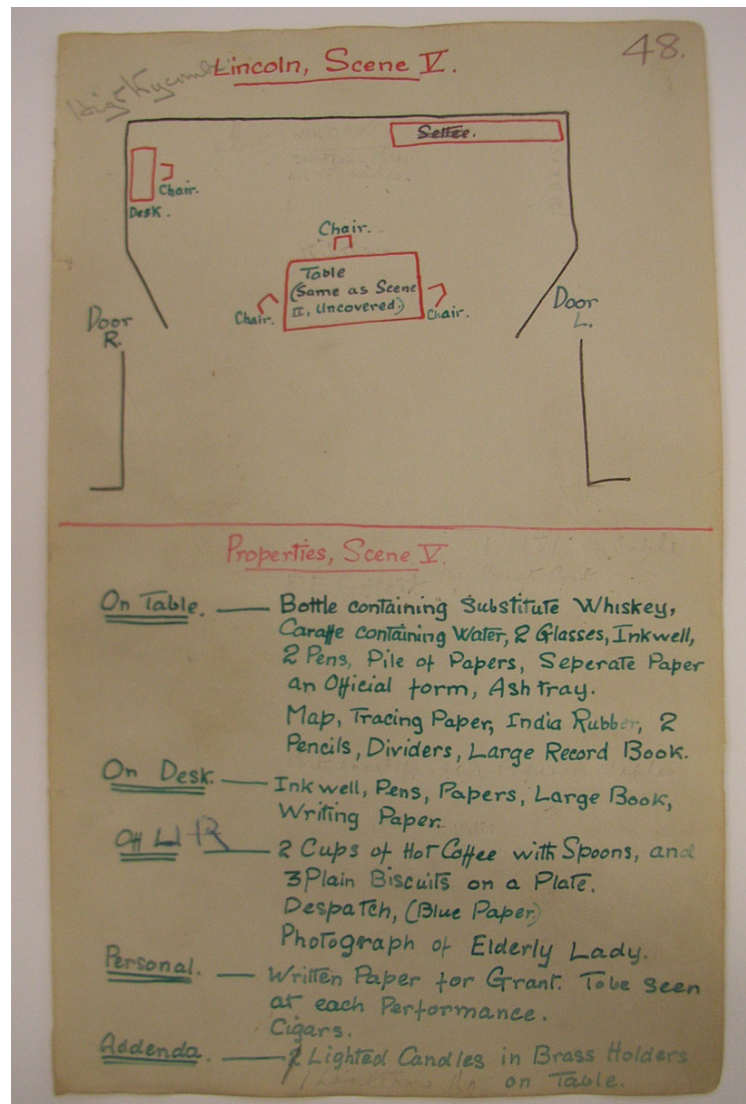 48.
Lincoln, Scene V.
Settee.
Chair.
Desk.
Chair.
Table
(Same as Scene
II, Uncovered.)
Chair.
Chair.
Door
R.
Door
L.
Properties, Scene V.
On Table. Bottle containing Substitute Whiskey,
Caraffe containing Water, 2 Glasses, Inkwell,
2 Pens, Pile of Papers, Seperate Paper
an Official form, Ash tray.
Map, Tracing Paper, India Rubber, 2
Pencils, Dividers, Large Record Book.
On Desk. Ink well, Pens, Papers, Large Book,
Writing Paper.
Off L R 2 Cups of Hot Coffee with Spoons, and
3 Plain Biscuits on a Plate.
Despatch, (Blue Paper)
Photograph of Elderly Lady.
Personal. Written Paper for Grant. To be seen
at each Performance.
Cigars.
Addenda. Lighted Candles in Brass Holders
on Table.